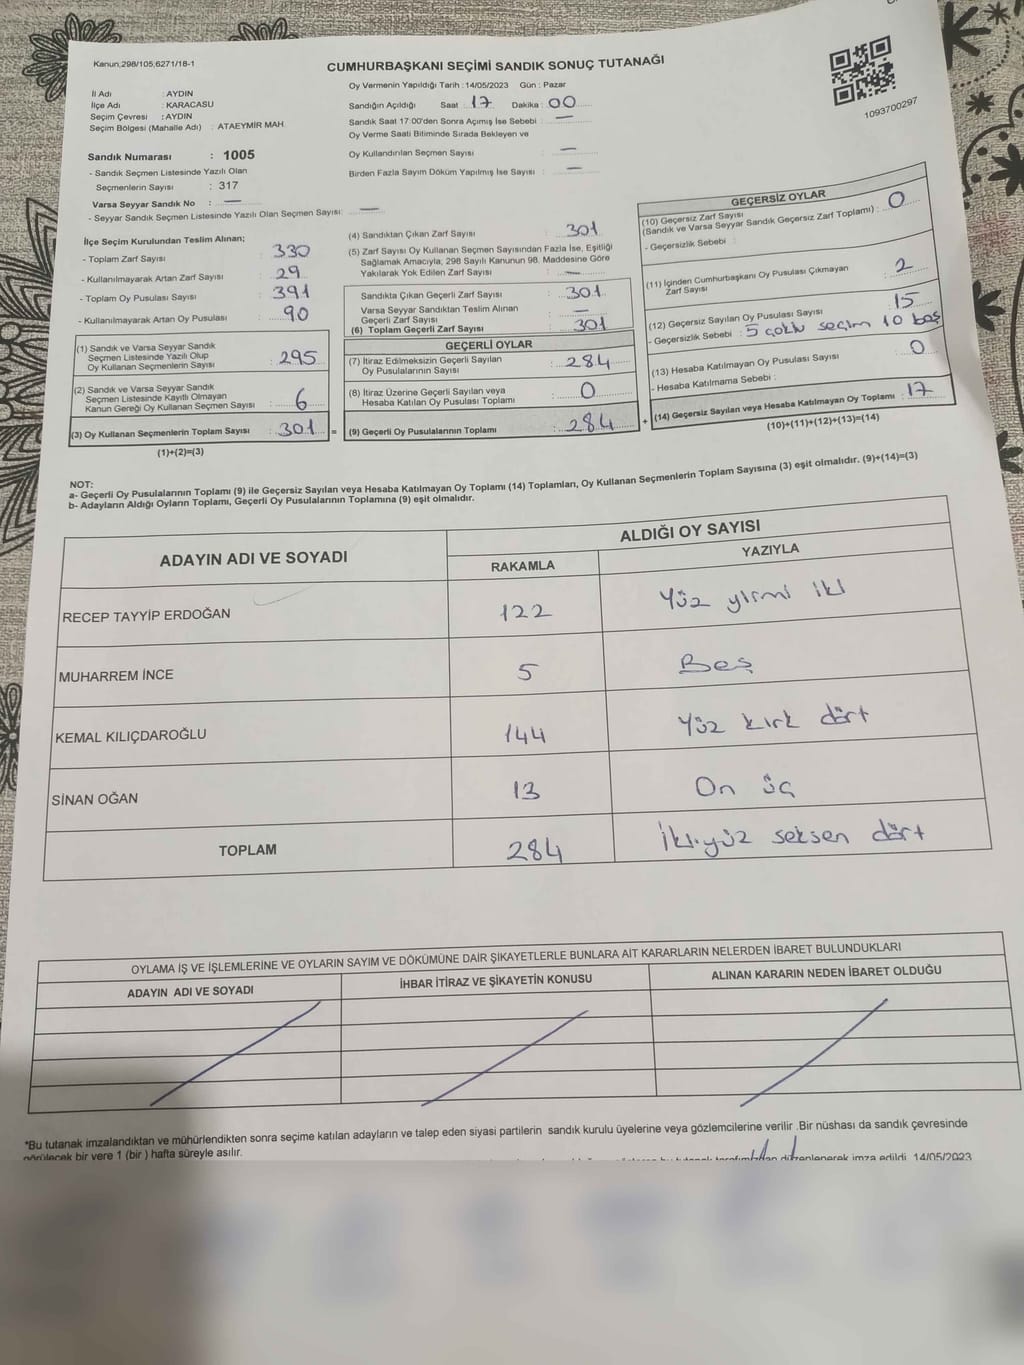 Kanun,298/105,6271/18-1
CUMHURBAŞKANI SEÇİMİ SANDIK SONUÇ TUTANAĞI
1093700297
İl Adı : AYDIN
İlçe Adı : KARACASU
Seçim Çevresi : AYDIN
Seçim Bölgesi (Mahalle Adı) : ATAEYMİR MAH.
Sandık Numarası : 1005
- Sandık Seçmen Listesinde Yazılı Olan
Seçmenlerin Sayısı : 317
Varsa Seyyar Sandık No : —
- Seyyar Sandık Seçmen Listesinde Yazılı Olan Seçmen Sayısı: —
Oy Vermenin Yapıldığı Tarih : 14/05/2023 Gün : Pazar
Sandığın Açıldığı Saat : 17 Dakika : 00
Sandık Saat 17:00'den Sonra Açımış İse Sebebi : —
Oy Verme Saati Bitiminde Sırada Bekleyen ve
Oy Kullandırılan Seçmen Sayısı : —
Birden Fazla Sayım Döküm Yapılmış İse Sayısı : —
İlçe Seçim Kurulundan Teslim Alınan;
- Toplam Zarf Sayısı : 330
- Kullanılmayarak Artan Zarf Sayısı : 29
- Toplam Oy Pusulası Sayısı : 391
- Kullanılmayarak Artan Oy Pusulası : 90
(1) Sandık ve Varsa Seyyar Sandık
Seçmen Listesinde Yazılı Olup
Oy Kullanan Seçmenlerin Sayısı : 295
(2) Sandık ve Varsa Seyyar Sandık
Seçmen Listesinde Kayıtlı Olmayan
Kanun Gereği Oy Kullanan Seçmen Sayısı : 6
(3) Oy Kullanan Seçmenlerin Toplam Sayısı : 301 =
(1)+(2)=(3)
(4) Sandıktan Çıkan Zarf Sayısı : 301
(5) Zarf Sayısı Oy Kullanan Seçmen Sayısından Fazla İse, Eşitliği
Sağlamak Amacıyla, 298 Sayılı Kanunun 98. Maddesine Göre
Yakılarak Yok Edilen Zarf Sayısı : —
Sandıkta Çıkan Geçerli Zarf Sayısı : 301
Varsa Seyyar Sandıktan Teslim Alınan
Geçerli Zarf Sayısı : —
(6) Toplam Geçerli Zarf Sayısı : 301
GEÇERLİ OYLAR
(7) İtiraz Edilmeksizin Geçerli Sayılan
Oy Pusulalarının Sayısı : 284
(8) İtiraz Üzerine Geçerli Sayılan veya
Hesaba Katılan Oy Pusulası Toplamı : 0
(9) Geçerli Oy Pusulalarının Toplamı : 284 +
GEÇERSİZ OYLAR
(10) Geçersiz Zarf Sayısı
(Sandık ve Varsa Seyyar Sandık Geçersiz Zarf Toplamı) : 0
- Geçersizlik Sebebi :
(11) İçinden Cumhurbaşkanı Oy Pusulası Çıkmayan
Zarf Sayısı : 2
(12) Geçersiz Sayılan Oy Pusulası Sayısı : 15
- Geçersizlik Sebebi : 5 çoklu seçim 10 boş
(13) Hesaba Katılmayan Oy Pusulası Sayısı : 0
- Hesaba Katılmama Sebebi :
(14) Geçersiz Sayılan veya Hesaba Katılmayan Oy Toplamı : 17
(10)+(11)+(12)+(13)=(14)
NOT:
a- Geçerli Oy Pusulalarının Toplamı (9) ile Geçersiz Sayılan veya Hesaba Katılmayan Oy Toplamı (14) Toplamları, Oy Kullanan Seçmenlerin Toplam Sayısına (3) eşit olmalıdır. (9)+(14)=(3)
b- Adayların Aldığı Oyların Toplamı, Geçerli Oy Pusulalarının Toplamına (9) eşit olmalıdır.
ADAYIN ADI VE SOYADI
ALDIĞI OY SAYISI
RAKAMLA YAZIYLA
RECEP TAYYİP ERDOĞAN 122 Yüz yirmi iki
MUHARREM İNCE 5 Beş
KEMAL KILIÇDAROĞLU 144 Yüz kırk dört
SİNAN OĞAN 13 On üç
TOPLAM 284 İkiyüz seksen dört
OYLAMA İŞ VE İŞLEMLERİNE VE OYLARIN SAYIM VE DÖKÜMÜNE DAİR ŞİKAYETLERLE BUNLARA AİT KARARLARIN NELERDEN İBARET BULUNDUKLARI
ADAYIN ADI VE SOYADI İHBAR İTİRAZ VE ŞİKAYETİN KONUSU ALINAN KARARIN NEDEN İBARET OLDUĞU
*Bu tutanak imzalandıktan ve mühürlendikten sonra seçime katılan adayların ve talep eden siyasi partilerin sandık kurulu üyelerine veya gözlemcilerine verilir .Bir nüshası da sandık çevresinde
görülecek bir yere 1 (bir ) hafta süreyle asılır.
düzenlenerek imza edildi. 14/05/2023